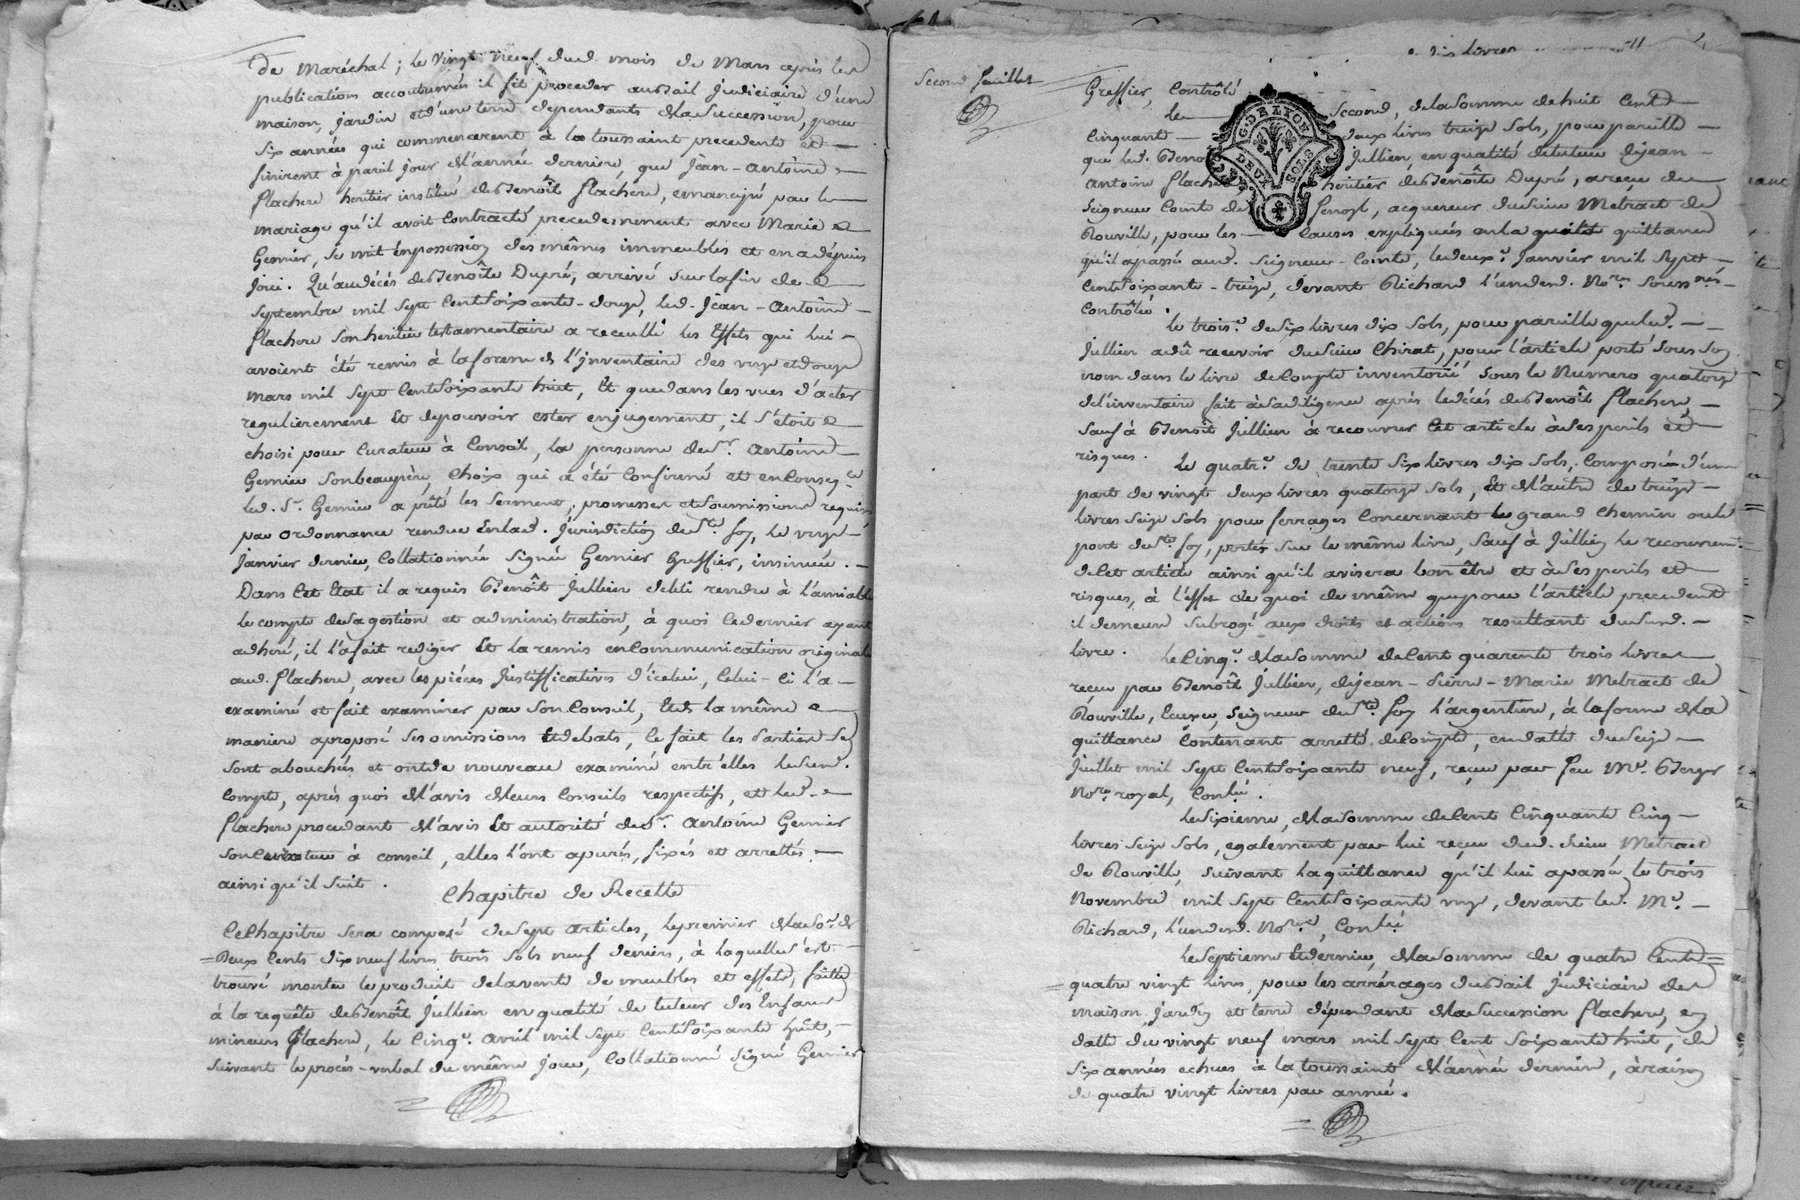 de Maréchal ; le Vingt neuf dud. mois de Mars après les
publications accoutumées il fit proceder au Bail judiciaire d'une
maison, jardin et d'une terre dependants de la Succession, pour
six années qui commencerent à la toussaint precedente et
finirent à pareil jour de l'année derniere, que jean-Antoine
flachere heritier institué de Benoît flachere, emancipé par le
mariage qu'il avoit Contracté precedemment avec Marie
Gernier, se mit en possession des mêmes immeubles et en a depuis
joui. Qu'au décés de Benoîte Dupré, arrivé sur la fin de
Septembre mil sept Cent soixante-douze, led. Jean-Antoine
flachere Son heritier testamentaire a receulli les Effets qui lui
avoient été remis à la forme de l'jnventaire des onze et douze
Mars mil sept Cent soixante huit, Et que dans les vues d'acter
regulierement Et de pouvoir ester en jugement, il s'étoit
choisi pour Curateur à Conseil, la personne de Sr. Antoine
Gernier Son beaupère, choix qui a été Confirmé et en Conseq.ce
led. Sr. Gernier a prêté les Serment, promesses et Soumissions requises
par ordonnance rendue En lad. Jurisdiction de Ste. foy, le onze
Janvier dernier, Collationnée Signée Gernier Greffier, insinuée.
Dans Cet Etat il a requis Benoît Jullien de lui rendre à l'amiable
le compte de sa gestion et administration, à quoi Ce dernier ayant
adheré, il l'a fait rediger Et la remis en Communication original
aud. flachere, avec les piéces Justifficatives d'icelui, Celui-Ci l'a
examiné et fait examiner par Son Conseil, Et de la même
maniere a proposé Ses omissions Et debats, Ce fait les Parties Se
Sont abouchées et ont de nouveau examiné entr'elles led. susd.
Compte, après quoi de l'avis de leurs Conseils respectifs, et led.
flachere procedant de l'avis Et autorité de Sr. Antoine Gernier
Son Curateur à Conseil, elles l'ont apurés, fixés et arrettés
ainsi qu'il Suit.
Chapitre de Recette
Ce Chapitre Sera composé de Sept articles, le premier de la So.e de
Deux Cents dix neuf livres trois Sols neuf deniers, à laquelle S'est
trouvé monter le produit de la vente de meubles et effets, faitte
à la requête de Benoît Jullien en qualité de tuteur des Enfans
mineurs flachere, le Cinq.e avril mil sept Cent Soixante huit,
Suivant le procés-verbal du même jour, Collationné Signé Gernier
Second feuillet
dix livres
Greffier, Contrôlé
G. DE LYON
DEUX SOLS
le Second, de la Somme de huit Cent
Cinquante deux livres treize Sols, pour pareille
que led. Benoît Jullien en qualité de tuteur de jean
Antoine flachere heritier de Benoîte Dupré, a reçu du
Seigneur Comte de fenoyl, acquereur du Sieur Metract de
Rouville, pour les Causes expliquées en la quittance
qu'il a passée aud. Seigneur-Comte, le deux.e Janvier mil sept
Cent soixante-treize, devant Richard l'un des d. No.res Soussnés.
Contrôlé.
le trois.e de six livres dix Sols, pour pareille que led.
Jullien a dû recevoir du Sieur Chirat, pour l'article porté Sous Son
nom dans le livre de Compte inventorié Sous le Numero quatorze
de l'inventaire fait à Sa diligence après le décés de Benoît flachere,
Sauf à Benoît Jullien à recouvrer Cet article à Ses perils et
risques.
Le quatr.e de trente Six livres dix Sols, Composée d'une
part de vingt deux livres quatorze Sols, Et de l'autre de treize
livres Seize Sols pour ferrages Concernant le grand Chemin ou le
port de Ste. foy, portés Sur le même livre, Sauf à Jullien le recouvrem.t
de Cet article ainsi qu'il avisera bon être et à Ses perils et
risques, à l'effet de quoi de même que pour l'article precedent
il demeure Subrogé aux droits et actions resultant du Susd.
livre.
Le Cinq.e de la Somme de Cent quarente trois livres
reçue par Benoît Jullien, de jean-Pierre-Marie Metract de
Rouville, Ecuyer, Seigneur de Ste. foy l'argentiere, à la forme de la
quittance Contenant arretté de Compte, en datte du Seize
Juillet mil sept Cent soixante neuf, reçue par feu Me. Berger
No.re royal, Con.lé.
Le Sixieme, de la Somme de Cent Cinquante Cinq
livres Seize Sols, egalement par lui reçue dud. Sieur Metract
de Rouville, Suivant la quittance qu'il lui a passée le trois
Novembre mil sept Cent soixante onze, devant led. Me.
Richard, l'un des d. No.res, Con.lé
Le Septieme Et dernier, de la Somme de quatre Cents
quatre vingt livres, pour les arrérages du Bail judiciaire des
maison, jardin et terre dépendant de la Succession flachere, en
datte du vingt neuf mars mil sept Cent Soixante huit, de
Six années echues à la toussaint de l'année derniere, à raison
de quatre vingt livres par année.